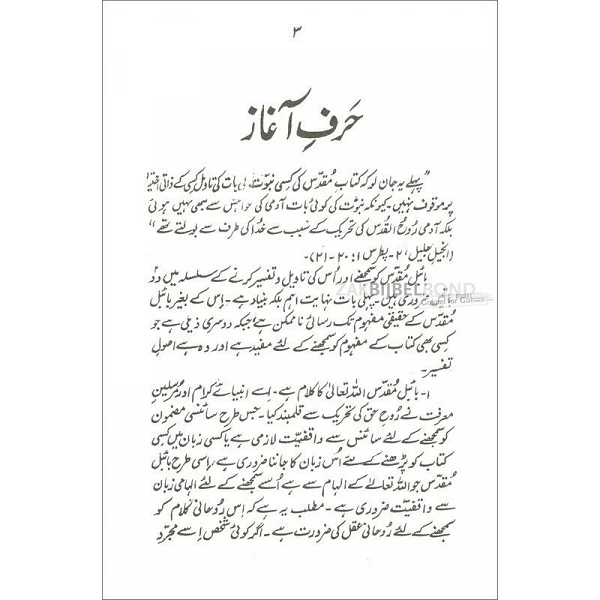 ۳
حَرفِ آغاز
"پہلے یہ جان لو کہ کتابِ مُقدّس کی کسی نبوّت کی بات کی تاویل کسی کے ذاتی اختیار
پر موقوف نہیں۔ کیونکہ نبوّت کی کوئی بات آدمی کی خواہش سے کبھی نہیں ہوئی
بلکہ آدمی رُوحُ القُدس کی تحریک کے سبب سے خُدا کی طرف سے بولتے تھے"
(انجیلِ جلیل، ۲۔ پطرس ۱: ۲۰ - ۲۱)۔
بائبل مُقدّس کو سمجھنے اور اُس کی تاویل و تفسیر کرنے کے سلسلہ میں دو
ضروری ہیں۔ پہلی بات نہایت اہم بلکہ بنیاد ہے۔ اِس کے بغیر بائبل
مُقدّس کے حقیقی مفہوم تک رسائی ناممکن ہے جبکہ دوسری ذیلی ہے جو
کسی بھی کتاب کے مفہوم کو سمجھنے کے لئے مفید ہے اور وہ ہے اصولِ
تفسیر۔
۱۔ بائبل مُقدّس اللہ تعالیٰ کا کلام ہے۔ اِسے انبیائے کرام اور مُرسلین
معرفت نے رُوحِ حق کی تحریک سے قلمبند کیا۔ جس طرح سائنسی مضمون
کو سمجھنے کے لئے سائنس سے واقفیّت لازمی ہے یا کسی زبان میں کسی
کتاب کو پڑھنے کے لئے اُس زبان کا جاننا ضروری ہے، اِسی طرح بائبل
مُقدّس جو اللہ تعالےٰ کے الہام سے ہے اُسے سمجھنے کے لئے الہامی زبان
سے واقفیّت ضروری ہے۔ مطلب یہ ہے کہ اِس رُوحانی کلام کو
سمجھنے کے لئے رُوحانی عقل کی ضرورت ہے۔ اگر کوئی شخص اِسے مجرّد